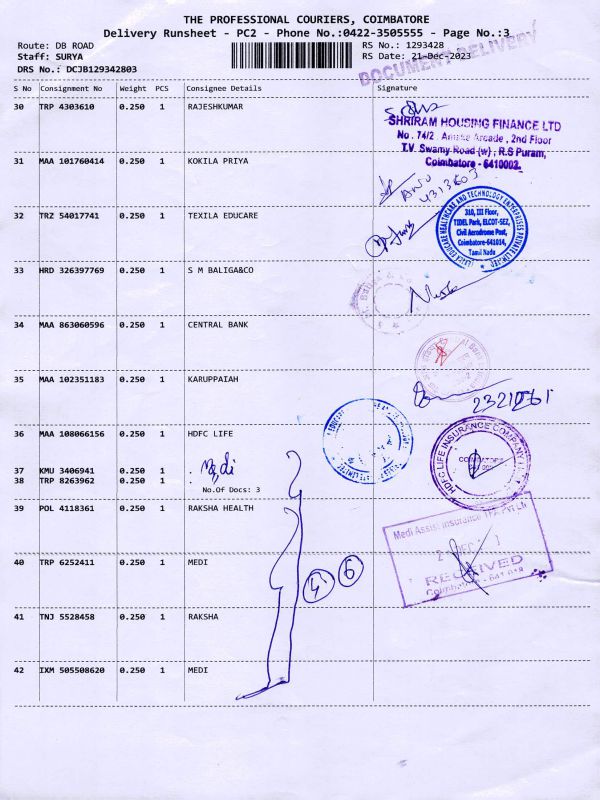 THE PROFESSIONAL COURIERS, COIMBATORE
Delivery Runsheet - PC2 - Phone No.:0422-3505555 - Page No.:3
Route: DB ROAD
RS No.: 1293428
Staff: SURYA
RS Date: 21-Dec-2023
DRS No.: DCJB129342803
DOCUMENT DELIVERY
S No Consignment No Weight PCS Consignee Details Signature
30 TRP 4303610 0.250 1 RAJESHKUMAR
SHRIRAM HOUSING FINANCE LTD
No. 74/2 Arcade, 2nd Floor
T.V. Swamy Road (w), R.S Puram,
Coimbatore - 641002.
31 MAA 101760414 0.250 1 KOKILA PRIYA
32 TRZ 54017741 0.250 1 TEXILA EDUCARE
TEXILA EDUCARE HEALTHCARE AND TECHNOLOGY ENTERPRISES PRIVATE LIMITED
310, III Floor,
TIDEL Park, ELCOT-SEZ,
Civil Aerodrome Post,
Coimbatore-641014,
Tamil Nadu
33 HRD 326397769 0.250 1 S M BALIGA&CO
34 MAA 863060596 0.250 1 CENTRAL BANK
35 MAA 102351183 0.250 1 KARUPPAIAH
36 MAA 108066156 0.250 1 HDFC LIFE
HDFC LIFE INSURANCE COMPANY
37 KMU 3406941 0.250 1
Medi
38 TRP 8263962 0.250 1
No.Of Docs: 3
39 POL 4118361 0.250 1 RAKSHA HEALTH
Medi Assist Insurance TPA Pvt Ltd
RECEIVED
Coimbatore - 641 018
40 TRP 6252411 0.250 1 MEDI
6
41 TNJ 5528458 0.250 1 RAKSHA
42 IXM 505508620 0.250 1 MEDI